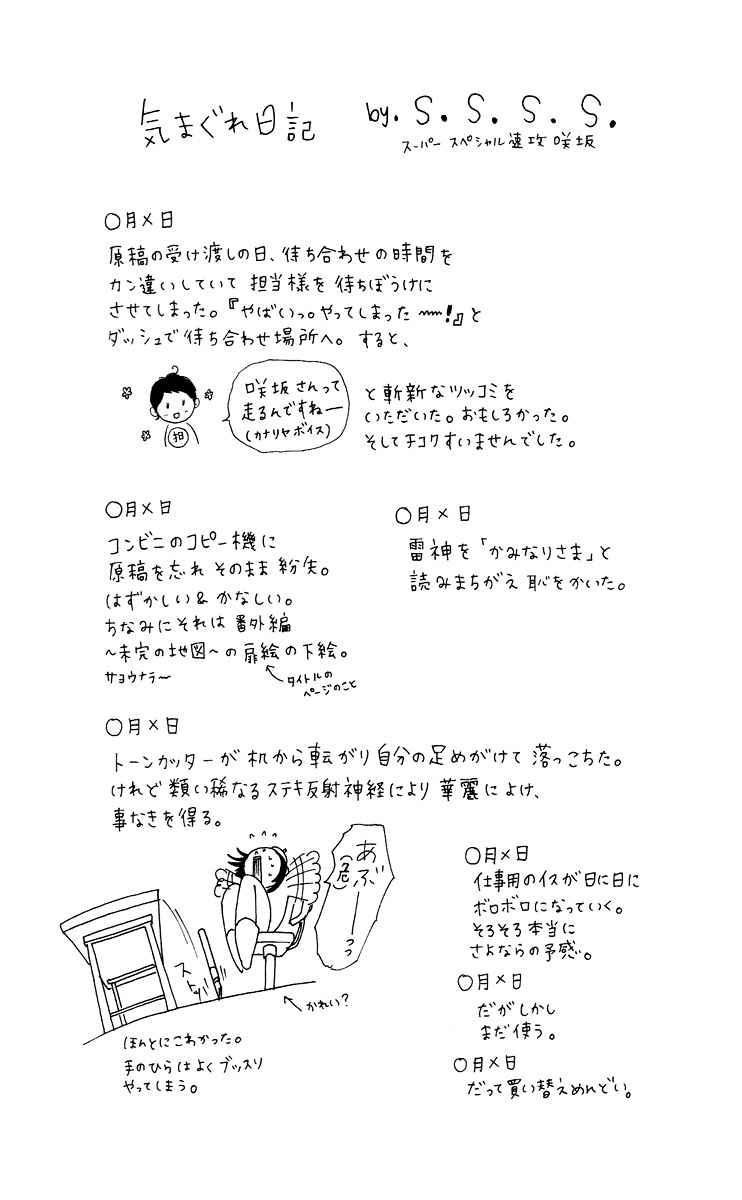 気まぐれ日記
by. S. S. S. S.
スーパー スペシャル 速攻 咲坂
○月×日
原稿の受け渡しの日、待ち合わせの時間を
カン違いしていて 担当様を 待ちぼうけに
させてしまった。『やばいっ。やってしまった 〰!』と
ダッシュで待ち合わせ場所へ。 すると、
担
咲坂さんって
走るんですねー
(カナリヤボイス)
と斬新なツッコミを
いただいた。おもしろかった。
そしてチコクすいませんでした。
○月×日
コンビニのコピー機に
原稿を忘れ そのまま 紛失。
はずかしい & かなしい。
ちなみにそれは 番外編
~未完の地図~の扉絵の下絵。
タイトルの
ページのこと
サヨウナラ~
○月×日
雷神を「かみなりさま」と
読みまちがえ 恥をかいた。
○月×日
トーンカッターが 机から転がり 自分の足めがけて 落っこちた。
けれど 類い稀なるステキ反射神経により 華麗によけ、
事なきを得る。
あぶ
(危)
ーっっ
ストッ
かれい?
ほんとにこわかった。
手のひらはよくブッスリ
やってしまう。
○月×日
仕事用のイスが日に日に
ボロボロになっていく。
そろそろ本当に
さよならの予感。
○月×日
だがしかし
まだ使う。
○月×日
だって買い替えめんどい。